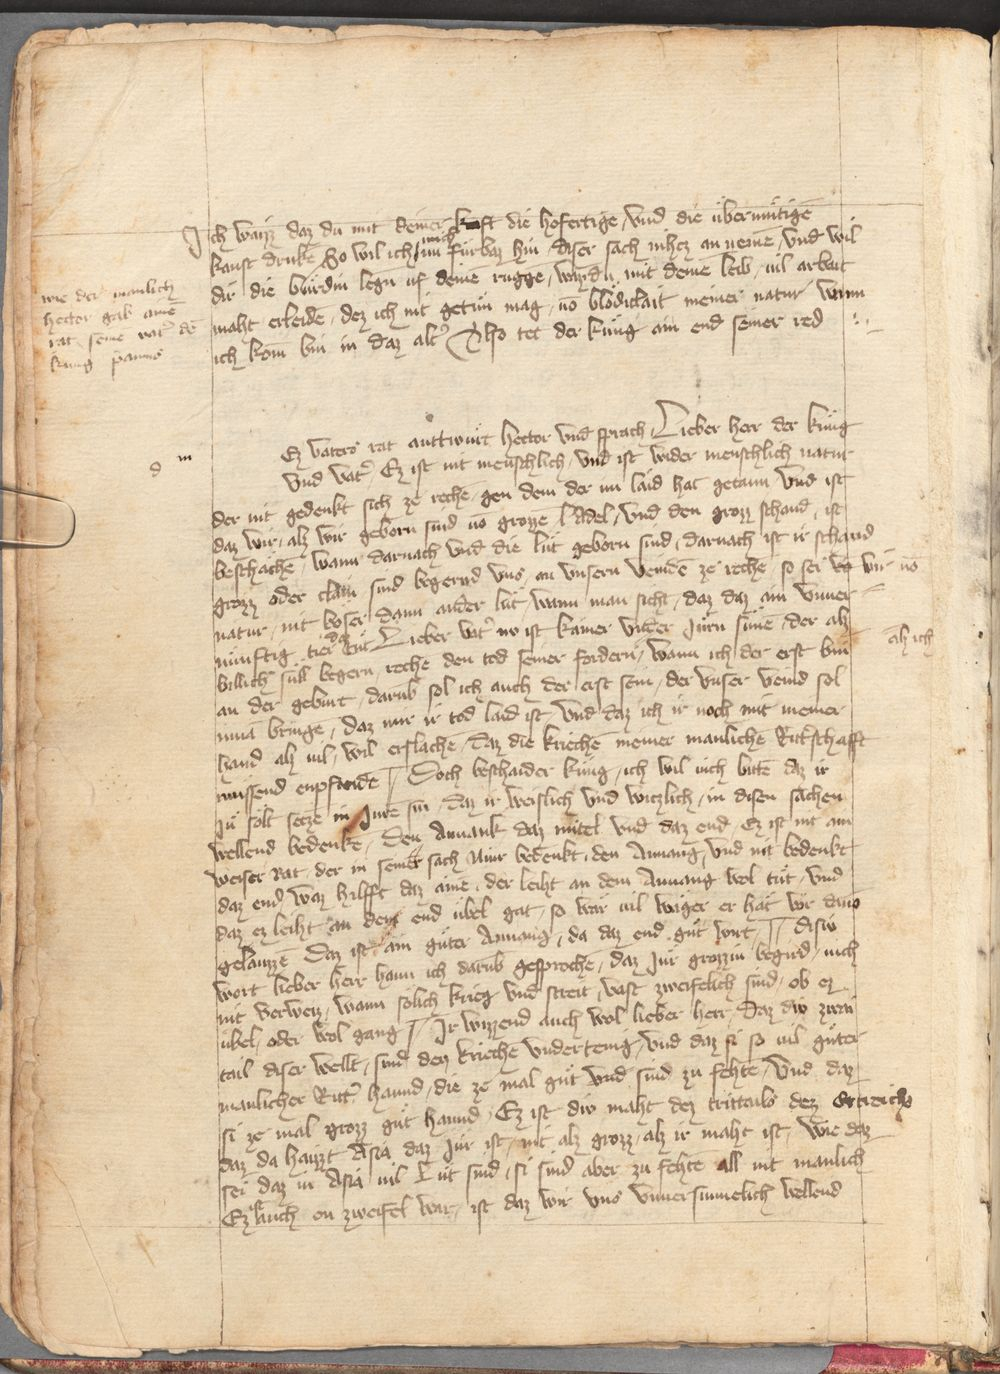 Ich waysz daz du mit deiner kraft die hofertige, vnd die v̈bermütigē
kanst druke So wil ich mich nu fürbaz hin, diser sach nihcz an nemē, vnd wil
dir die bürdin legn̄ uf deine rugge, wan du mit deinē leib, uil arbait
maht erleide, dez ich nit getün mag, uō blödiclait meiner natur wann
ich kom̄ bin in daz alt͛ Also tet der küng ain end seiner red
wie der manlich
hector gab ainē
rat seinē vat͛ dē
küng priamus
d m
Ez vaters rat anttwürt hector vnd sprach, Lieber herr der küng
vnd vat͛, Ez ist nit menschlich, vnd ist wider menschlich natur
der nit gedenkt sich ze rechē, gen dem der im laid hat getann vnd ist
daz wir, alz wir geborn sind uō grozze Adel, vnd den grozz schand, ist
beschächē, wann darnach vnd die lüt geborn sind, darnach ist ir schannd
grozz oder clain sind begernd vns, an vnsern veindē ze rechē, so sei wir uō
natur, nit böser dann ander lüt, wann man sicht, daz daz ain vnuer-
nünftig tier daz tüt Lieber vat͛ nu ist kainer vnder Jurn sünē, der alz
billich süll begern, rechē den tod seiner fordern, wann ich der erst bin alz ich
an der geburt, darūb sol ich auch der erst sein, der vnser veind sol
vmā bringē, daz mir ir tod laid ist, vnd daz ich ir noch mit meiner
hand alz uil, wil erslachē, daz die kriechē meiner manlichē Ritt͛schafft
müssend enpfinde Doch beschaider küng, ich wil üch bittē daz ir
Jü sölt setze in Jure sin, daz ir weislich vnd witzlich, in disen sachen
wellend bedenkē, den Anuank daz mitel vnd daz end, Ez ist nit ain
weiser Rat, der in seiner sach Nuir bedenkt, den Anuang, vnd nit bedenkt
daz end, waz hilfft daz ainē, der leiht an dem Anuang wol tüt, vnd
daz ez leiht an dem end übel gat, so wär uil wäger er hät wir dauō
gelauzzē Daz ist ain güter Anuang, da daz end güt wirt, Disiv
wort lieber herr hann ich darūb gesprochē, daz Jür grozziu begird, mich
nit verweiz, wann sölich krieg vnd streit, vast zweifelich sind, ob ez
übel, oder wol gang Ir wizzend auch wol lieber herr, daz div zwai
tail diser wellt, sind den krieche vndertenig, vnd daz si so uil güter
manlicher Ritt͛ hannd, die ze mal güt vnd sind zu fehtē, vnd daz
si ze mal grozz güt hannd, Ez ist div maht dez trittails dez Ertreichs
daz da haizzt Asia daz Jür ist, nit alz grozz, alz ir maht ist, wie daz
sei daz in Asia uil Lüt sind, si sind aber zu fehtē all nit manlich
Ez ist auch on zweifel war, ist daz wir vns vnuersinnelich wellend